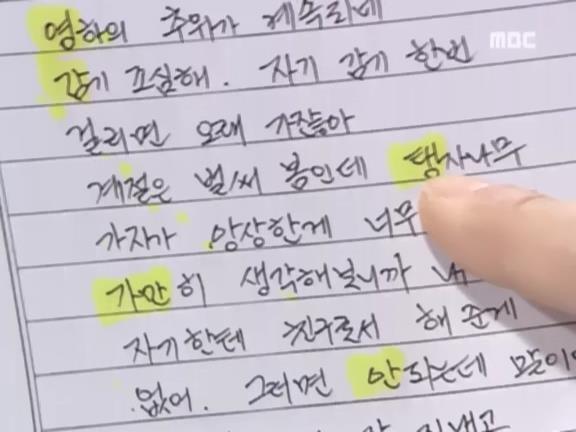 영하의 추위가 계속되네
MBC
감기 조심해. 자기 감기 한번
걸리면 오래 가잖아
계절은 벌써 봄인데 탱자나무
가지가 앙상한게 너무
가만히 생각해보니까 내
자기한테 친구로서 해 준게
없어. 그러면 안되는데 말이
지내고